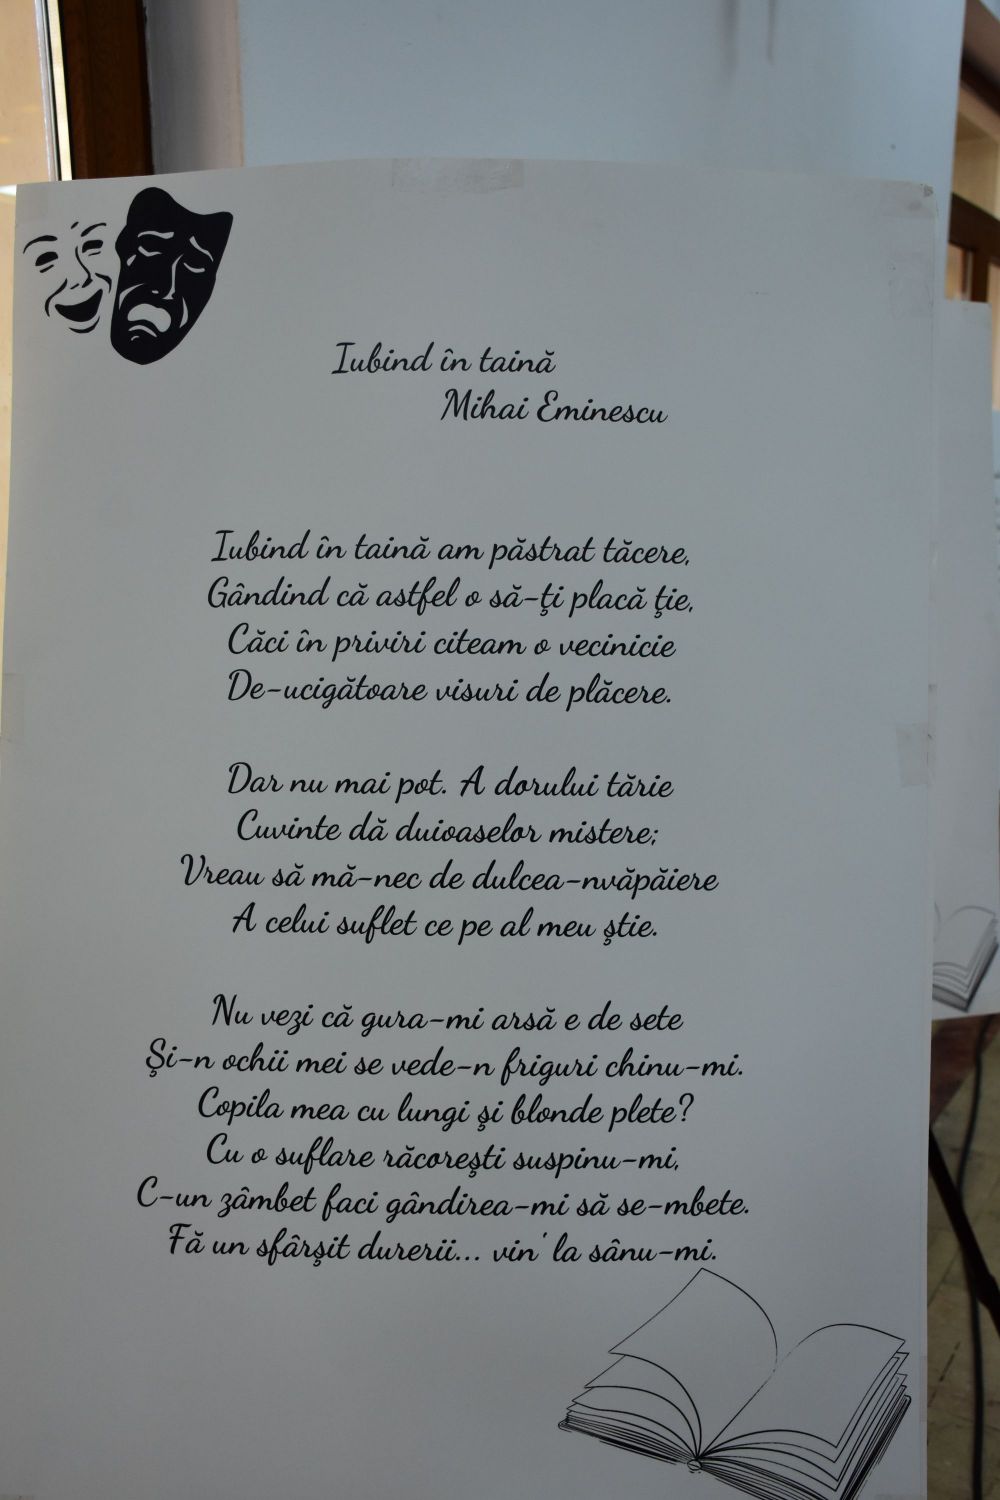 Iubind în taină
Mihai Eminescu
Iubind în taină am păstrat tăcere,
Gândind că astfel o să-ţi placă ţie,
Căci în priviri citeam o vecinicie
De-ucigătoare visuri de plăcere.
Dar nu mai pot. A dorului tărie
Cuvinte dă duioaselor mistere;
Vreau să mă-nec de dulcea-nvăpăiere
A celui suflet ce pe al meu ştie.
Nu vezi că gura-mi arsă e de sete
Şi-n ochii mei se vede-n friguri chinu-mi.
Copila mea cu lungi şi blonde plete?
Cu o suflare răcoreşti suspinu-mi,
C-un zâmbet faci gândirea-mi să se-mbete.
Fă un sfârşit durerii... vin' la sânu-mi.